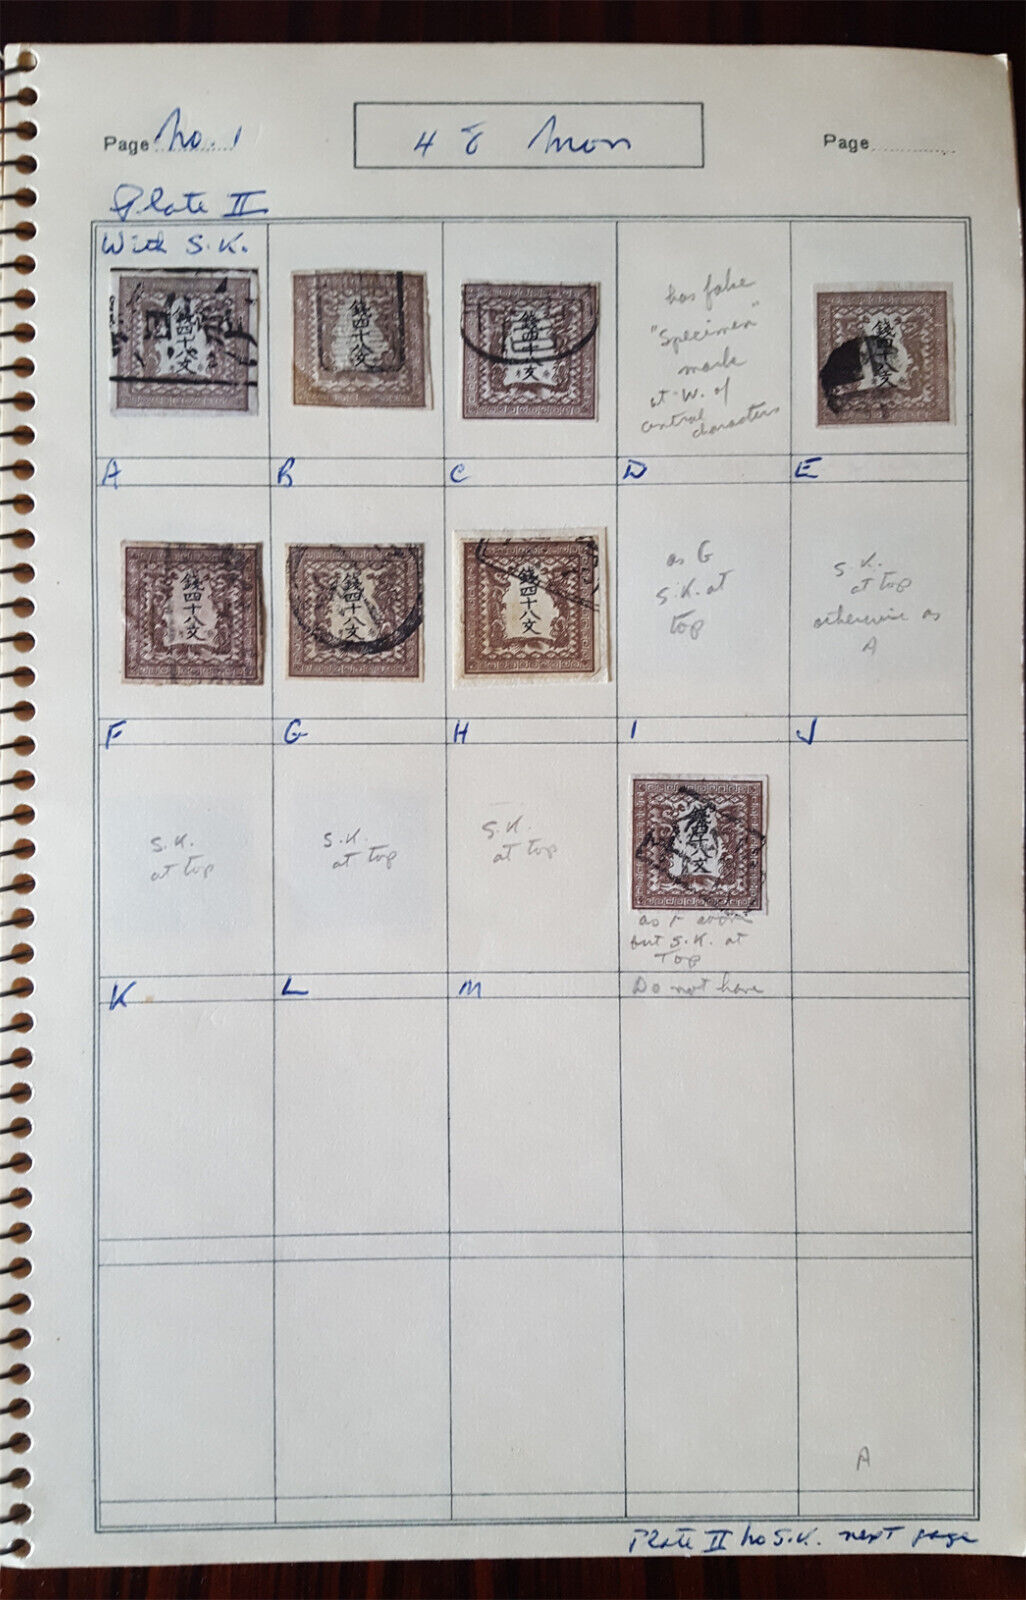 Page No. 1
48 Mon
Page
Plate II
With S.K.
錢四十八文
錢四十八文
錢四十八文
has fake
"Specimen"
mark
at W. of
central
characters
錢四十八文
A
B
C
D
E
錢四十八文
錢四十八文
錢四十八文
as G
S.K. at
top
S.K.
at top
otherwise as
A
F
G
H
I
J
S.K.
at top
S.K.
at top
S.K.
at top
錢四十八文
as
but S.K. at
Top
K
L
M
Do not have
A
Plate II no S.K. next page